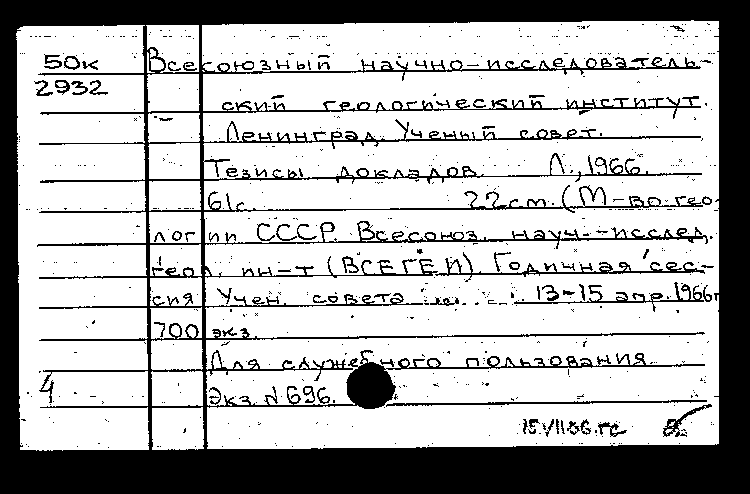 50к Всесоюзный научно-исследователь-
2932
ский геологический институт.
Ленинград. Ученый совет.
Тезисы докладов. Л., 1966.
61с. 22 см. (М-во гео-
логии СССР. Всесоюз. науч.-исслед.
геол. ин-т (ВСЕГЕИ). Годичная сес-
сия Учен. совета 13-15 апр. 1966г
700 экз.
Для служебного пользования.
4 Экз. N 696.